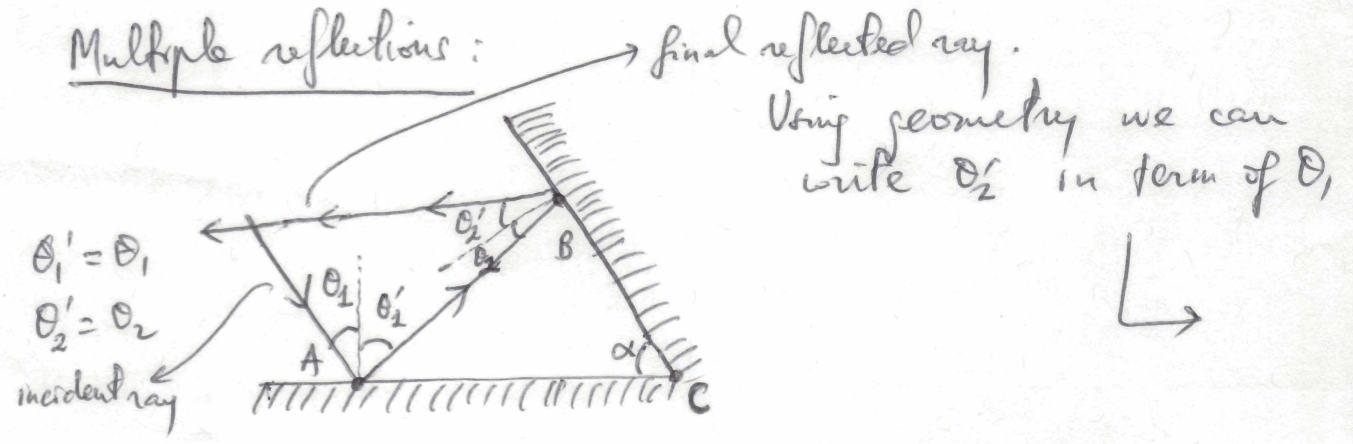 Multiple reflections :
final reflected ray.
Using geometry we can
write θ₂' in term of θ₁
θ₁' = θ₁
θ₂' = θ₂
incident ray
θ₁
θ₁'
A
θ₂'
θ₂
B
α
C